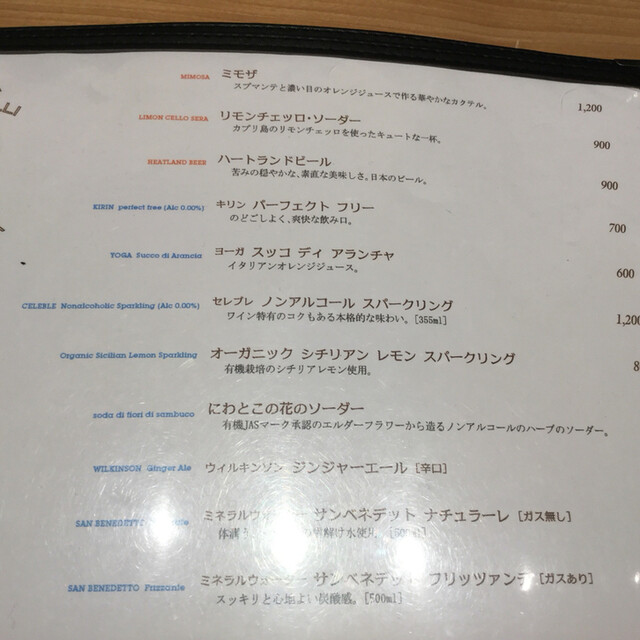 MIMOSA ミモザ
スプマンテと濃い目のオレンジジュースで作る華やかなカクテル。 1,200
LIMON CELLO SERA リモンチェッロ・ソーダー
カプリ島のリモンチェッロを使ったキュートな一杯。 900
HEATLAND BEER ハートランドビール
苦みの穏やかな、素直な美味しさ。日本のビール。 900
KIRIN perfect free (Alc 0.00%) キリン パーフェクト フリー
のどごしよく、爽快な飲み口。 700
YOGA Succo di Arancia ヨーガ スッコ ディ アランチャ
イタリアンオレンジジュース。 600
CELEBLE Nonalcoholic Sparkling (Alc 0.00%) セレブレ ノンアルコール スパークリング
ワイン特有のコクもある本格的な味わい。[355ml] 1,200
Organic Sicilian Lemon Sparkling オーガニック シチリアン レモン スパークリング
有機栽培のシチリアレモン使用。 8
soda di fiori di sambuco にわとこの花のソーダー
有機JASマーク承認のエルダーフラワーから造るノンアルコールのハーブのソーダー。
WILKINSON Ginger Ale ウィルキンソン ジンジャーエール [辛口]
SAN BENEDETTO ミネラルウォーター サンベネデット ナチュラーレ [ガス無し]
[500ml]
SAN BENEDETTO Frizzante ミネラルウォーター サンベネデット フリッツァンテ [ガスあり]
スッキリと心地よい炭酸感。[500ml]